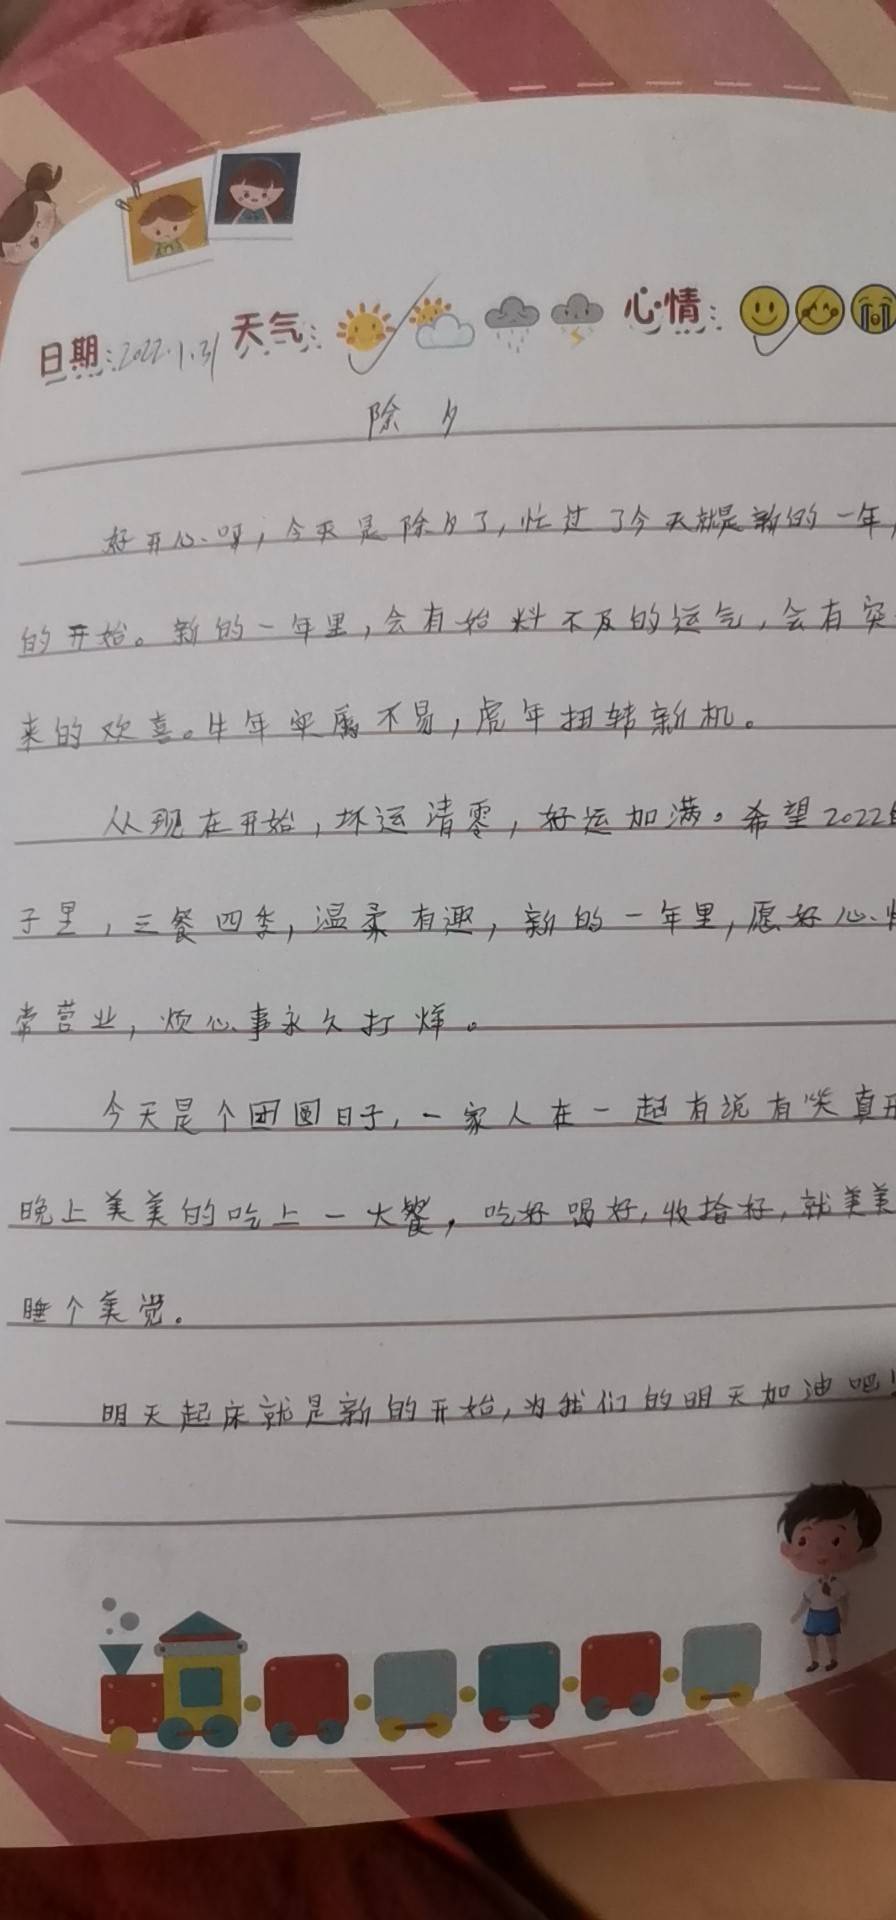 日期:2022.1.31 天气: 心情:
除夕
好开心呀,今天是除夕了,忙过了今天就是新的一年,
的开始。新的一年里,会有始料不及的运气,会有突
来的欢喜。牛年实属不易,虎年扭转新机。
从现在开始,坏运清零,好运加满。希望2022
子里,三餐四季,温柔有趣,新的一年里,愿好心
常营业,烦心事永久打烊。
今天是个团圆日子,一家人在一起有说有笑真开
晚上美美的吃上一大餐,吃好喝好,收拾好,就美美
睡个美觉。
明天起床就是新的开始,为我们的明天加油吧!